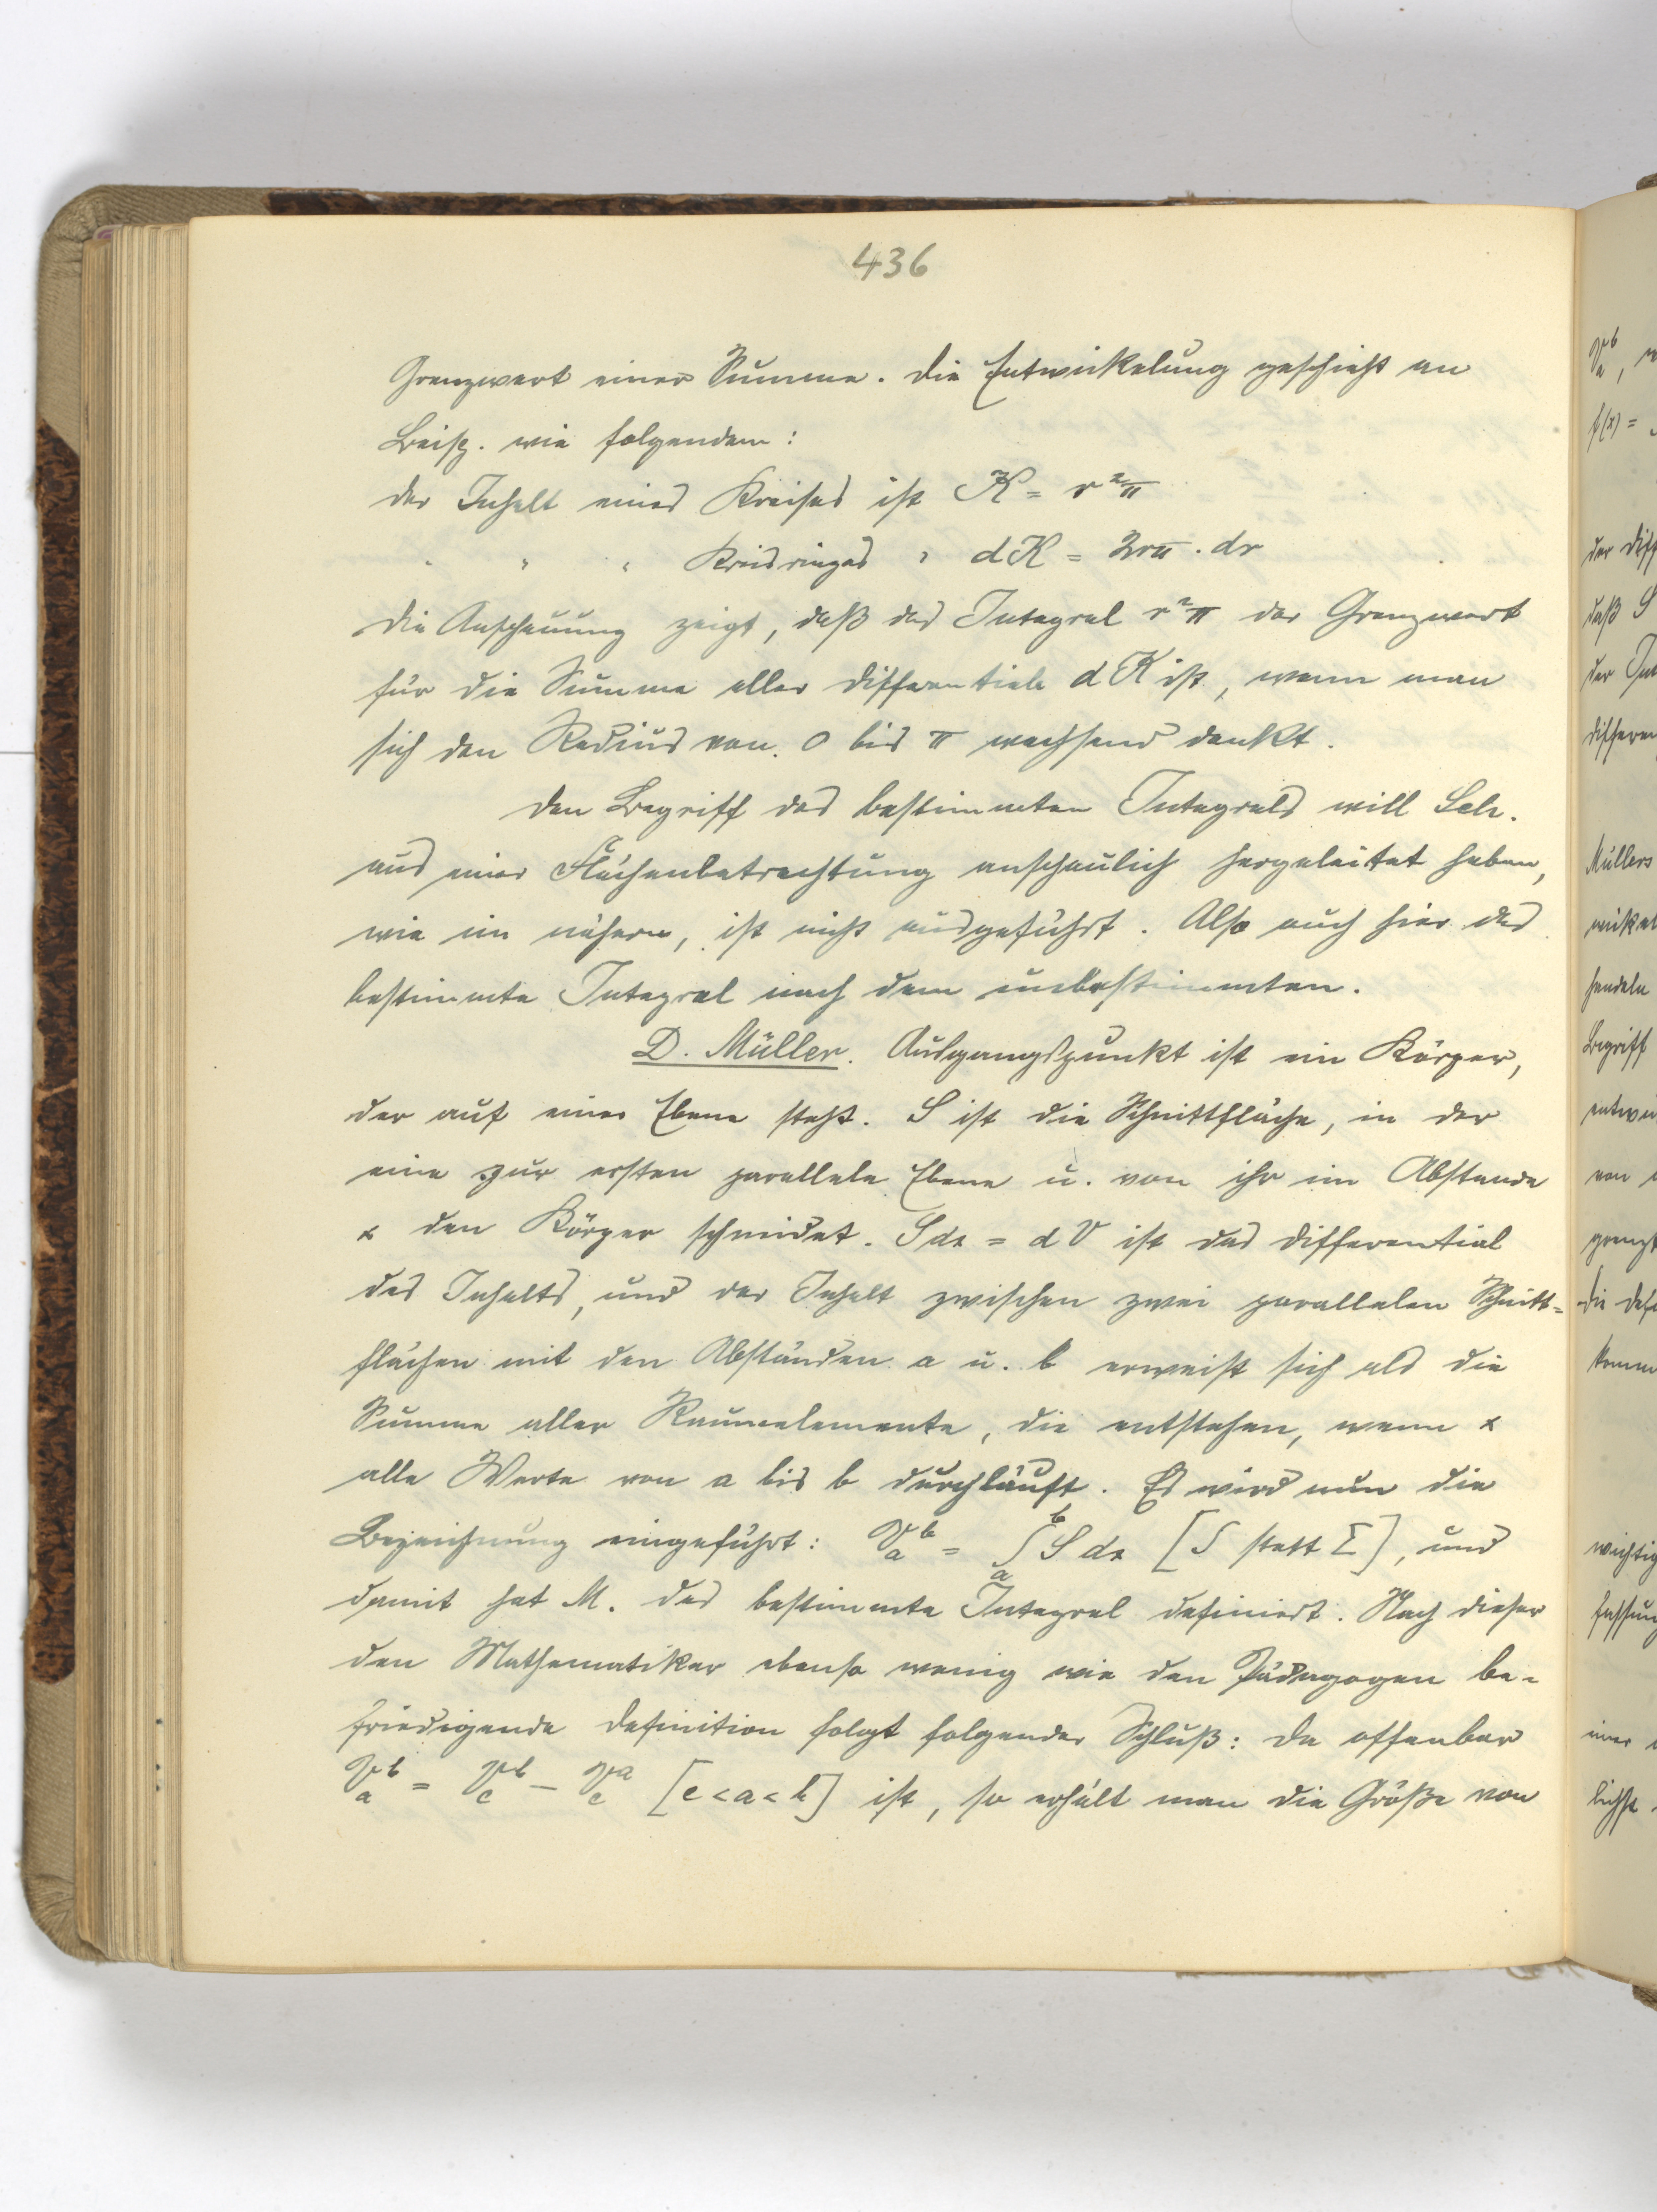 436
Grenzwert einer Summe. Die Entwickelung geschieht an
Beisp. wie folgendem:
Der Inhalt eines Kreises ist K = r²π
" " " Kreisringes " dK = 2rπ · dr
Die Anschauung zeigt, daß das Integral r²π der Grenzwert
für die Summe aller Differentiale dK ist, wenn man
sich den Radius von 0 bis π wachsend denkt.
Den Begriff des bestimmten Integrals will Sch.
aus einer Flächenbetrachtung anschaulich hergeleitet haben,
wie im nähern, ist nicht ausgeführt. Also auch hier das
bestimmte Integral nach dem unbestimmten.
D. Müller. Ausgangspunkt ist ein Körper,
der auf einer Ebene steht. S ist die Schnittfläche, in der
eine zur ersten parallele Ebene u. von ihr im Abstande
x den Körper schneidet. S dx = dV ist das Differential
des Inhalts, und der Inhalt zwischen zwei parallelen Schnitt=
flächen mit den Abständen a u. b erweist sich als die
Summe aller Raumelemente, die entstehen, wenn x
alle Werte von a bis b durchläuft. Es wird nun die
Bezeichnung eingeführt: V_a^b = ∫_a^b S dx [∫ statt Σ], und
damit hat M. das bestimmte Integral definiert. Nach dieser
den Mathematiker ebenso wenig wie den Pädagogen be=
friedigende Definition folgt folgender Schluß: Da offenbar
V_a^b = V_c^b − V_c^a [c < a < b] ist, so erhält man die Größe von